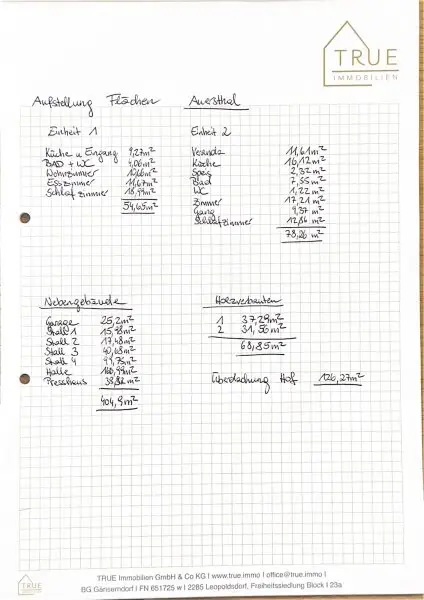 TRUE
IMMOBILIEN
Aufstellung Flächen Auersthal
Einheit 1
Küche u Eingang 9,27m²
BAD + WC 4,06m²
Wohnzimmer 10,66m²
Esszimmer 11,67m²
Schlafzimmer 18,99m²
54,65m²
Einheit 2
Veranda 11,61m²
Küche 16,12m²
Speis 2,32m²
Bad 7,55m²
WC 1,22m²
Zimmer 17,21m²
Gang 9,37m²
Schlafzimmer 12,86m²
78,26m²
Nebengebäude
Garage 25,2m²
Stall 1 15,98m²
Stall 2 17,48m²
Stall 3 40,68m²
Stall 4
Halle
Presshaus 38,82m²
404,9m²
Holzverbauten
1 37,29m²
2 31,56m²
68,85m²
Überdachung Hof 126,27m²
TRUE Immobilien GmbH & Co KG I www.true.immo I office@true.immo I
BG Gänserndorf I FN 651725 w I 2285 Leopoldsdorf, Freiheitssiedlung Block I 23a
TRUE